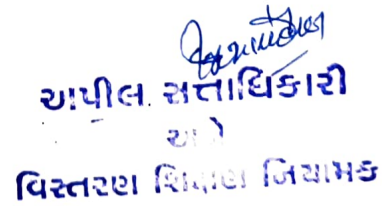 અપીલ સત્તાધિકારી
અને
વિસ્તરણ શિક્ષણ નિયામક